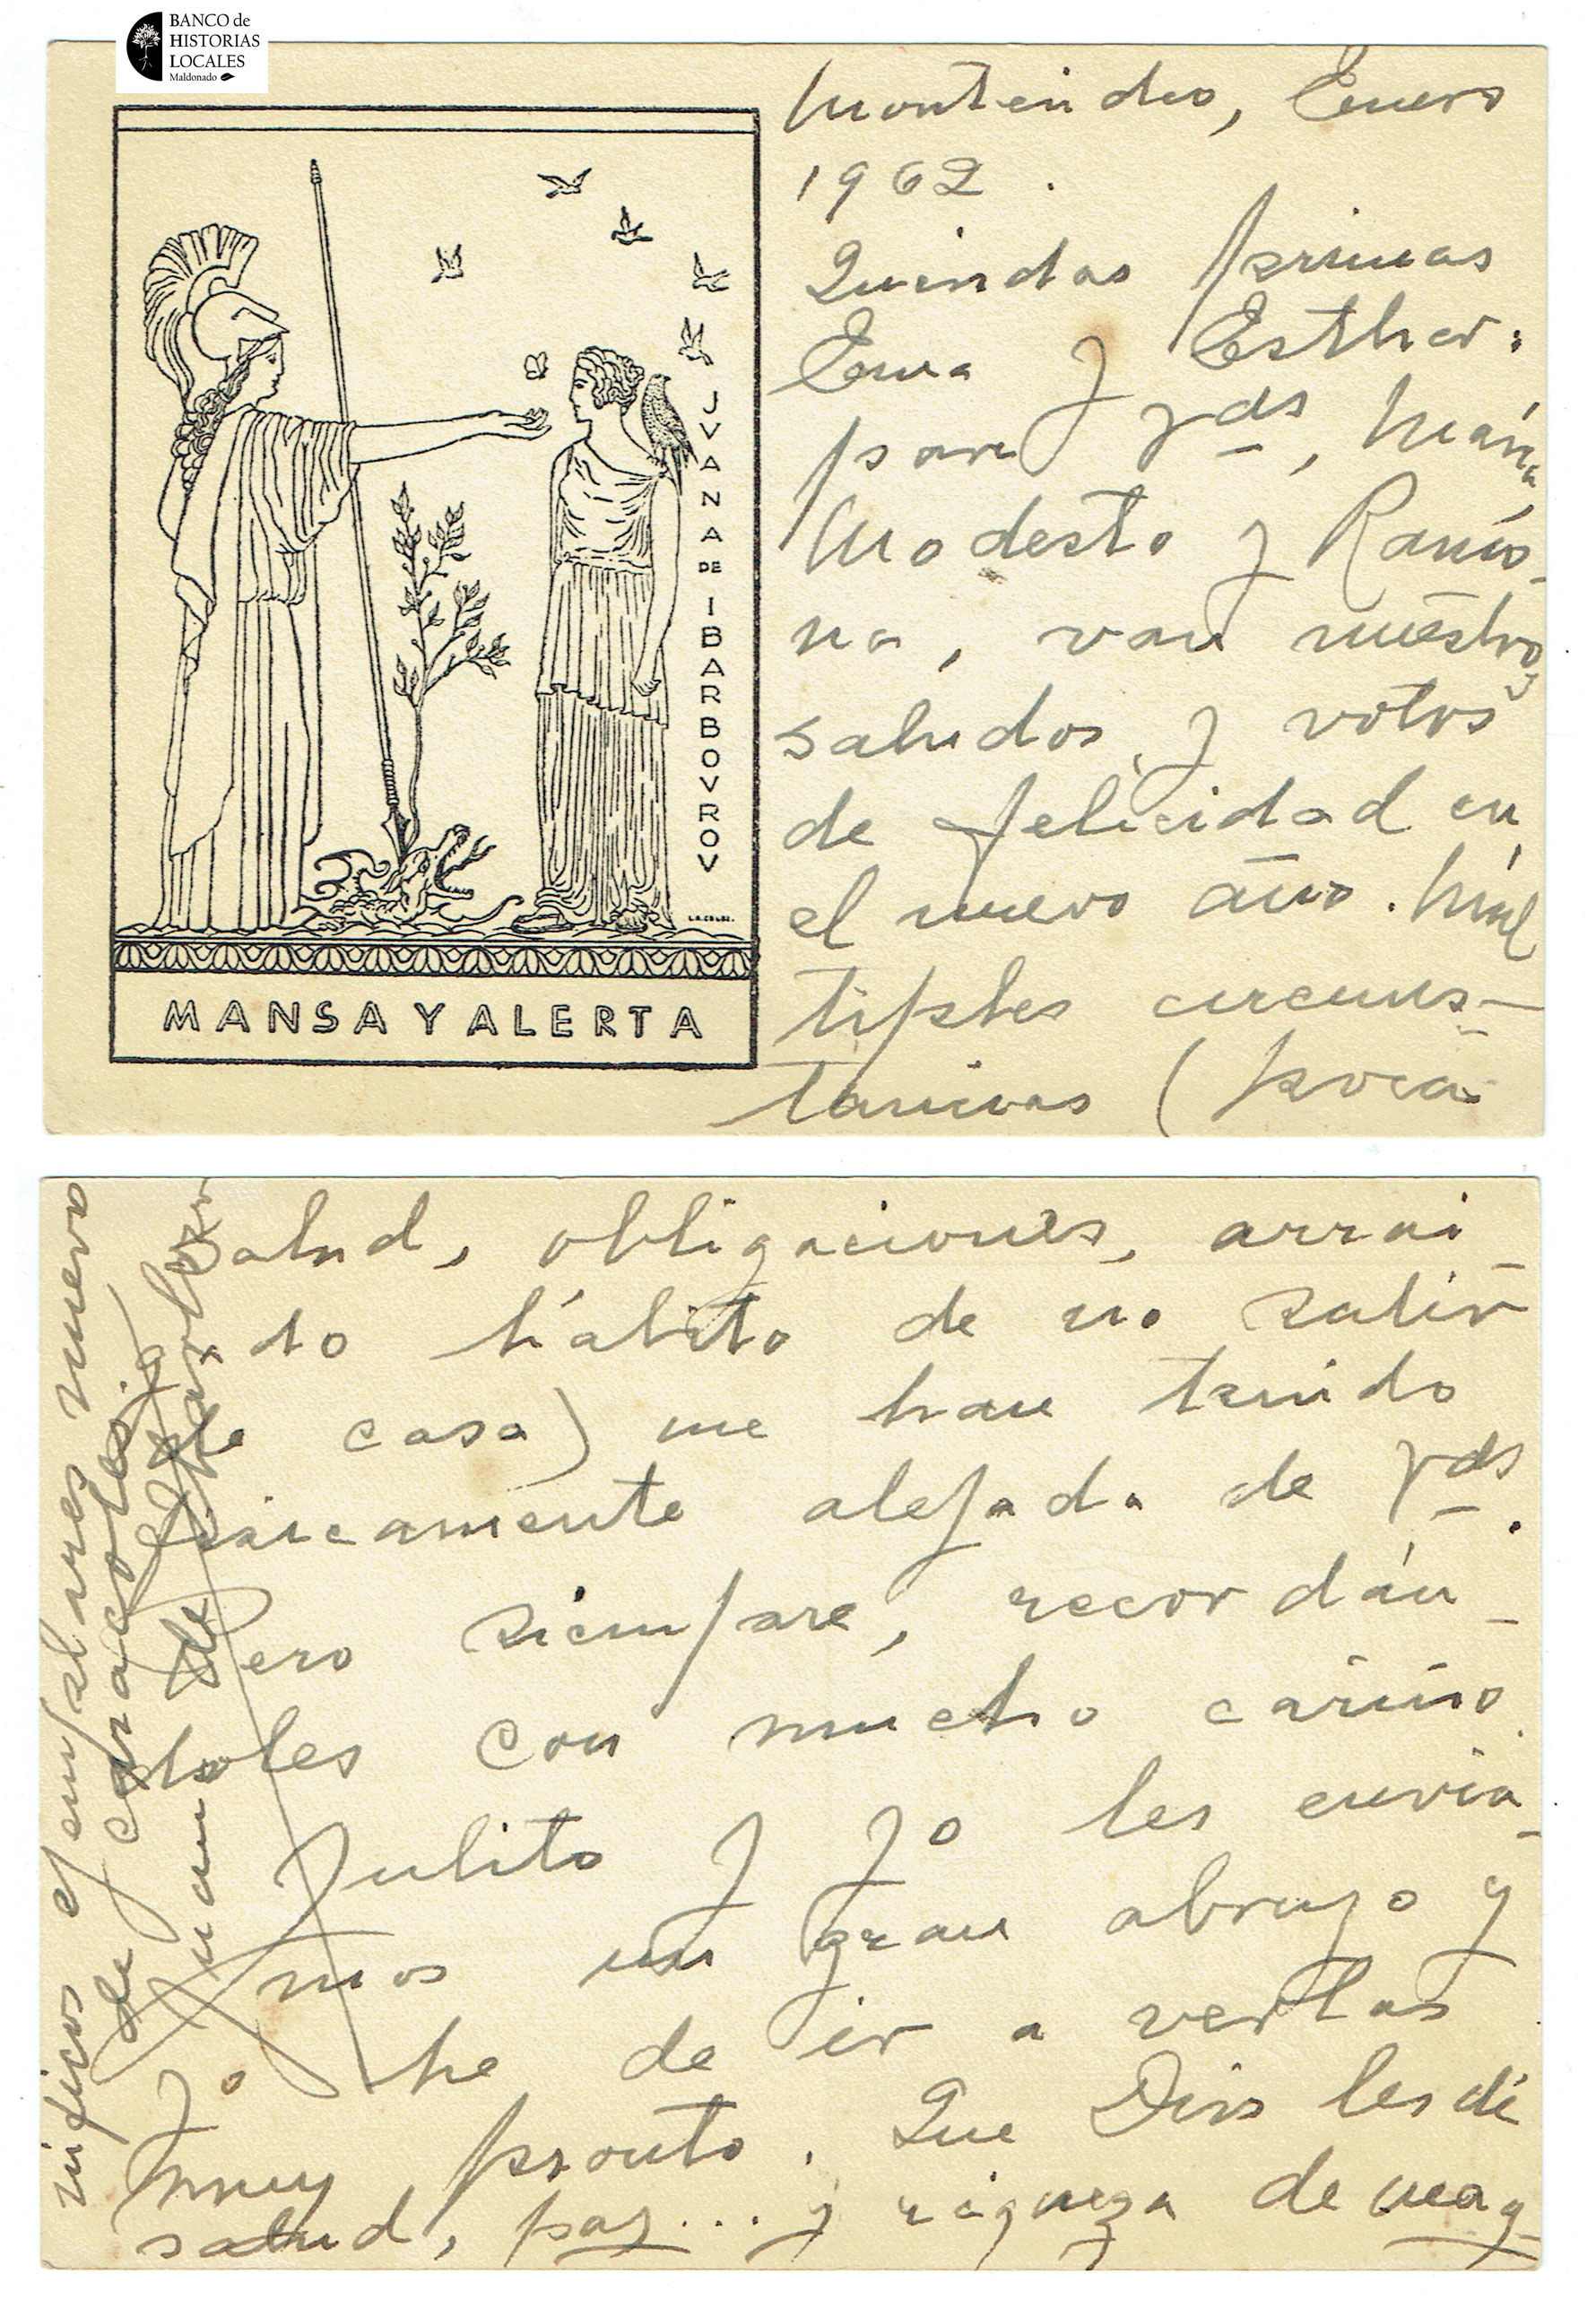 BANCO de
HISTORIAS
LOCALES
Maldonado
JVANA DE IBARBOVROV
MANSA Y ALERTA
Montevideo, Enero
1962.
Queridas primas
Ema y Esther:
para Vds, María
Modesto y Ramo-
na, van nuestros
saludos y votos
de felicidad en
el nuevo año. Múl
tiples circuns-
tancias (poca
salud, obligaciones, arrai
gado hábito de no salir
de casa) me han tenido
fisicamente alejada de Vds.
Pero siempre, recordán-
doles con mucho cariño.
Julito y yo les envia-
mos un gran abrazo y
yo he de ir a verlas
muy pronto. Que Dios les dé
salud, paz... y riqueza de mag-
níficos ejemplares nuevo
de caracoles.
Juana de